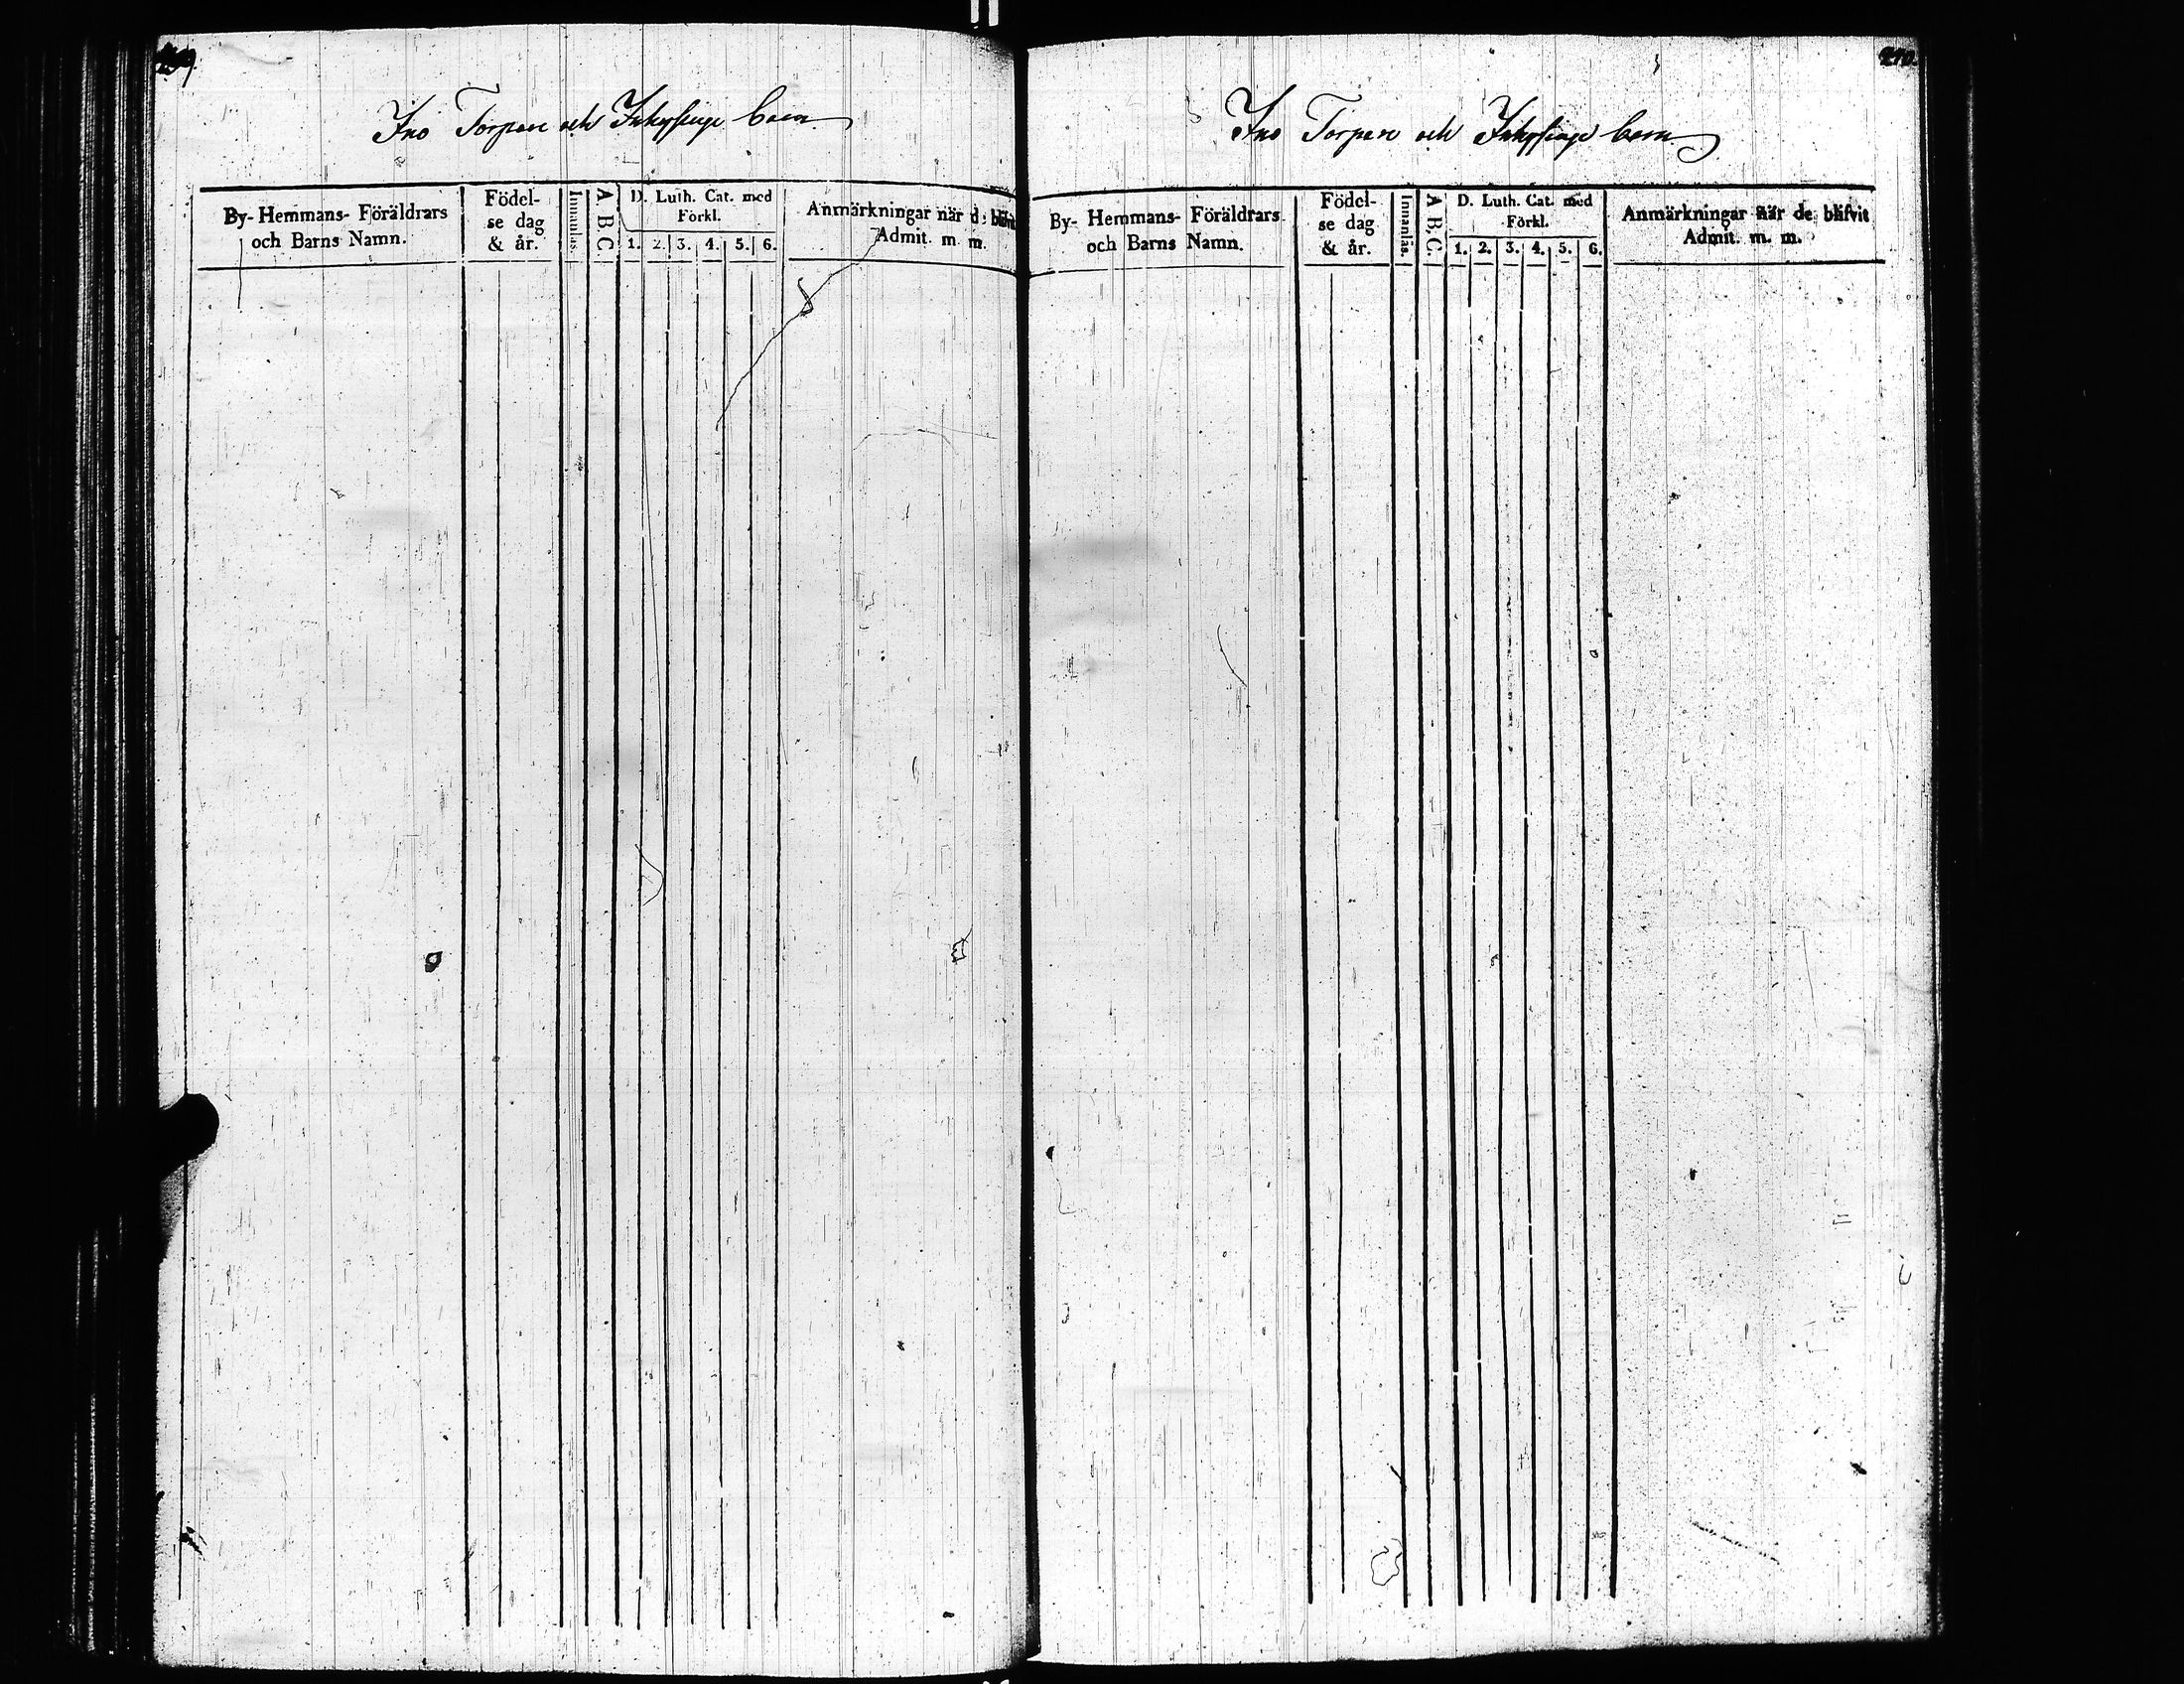 Ino Torpare och Inhysinge barn
By- Hemmans- Föräldrars
och Barns Namn.
Födel-
se dag
& år.
Innanläs.
A B C.
D. Luth. Cat. med
Förkl.
1. 2. 3. 4. 5. 6.
Anmärkningar när de blifvit
Admit. m. m.
270.
Ino Torpare och Inhysinge barn
By- Hemmans- Föräldrars
och Barns Namn.
Födel-
se dag
& år.
Innanläs.
A B C.
D. Luth. Cat. med
Förkl.
1. 2. 3. 4. 5. 6.
Anmärkningar när de blifvit
Admit. m. m.